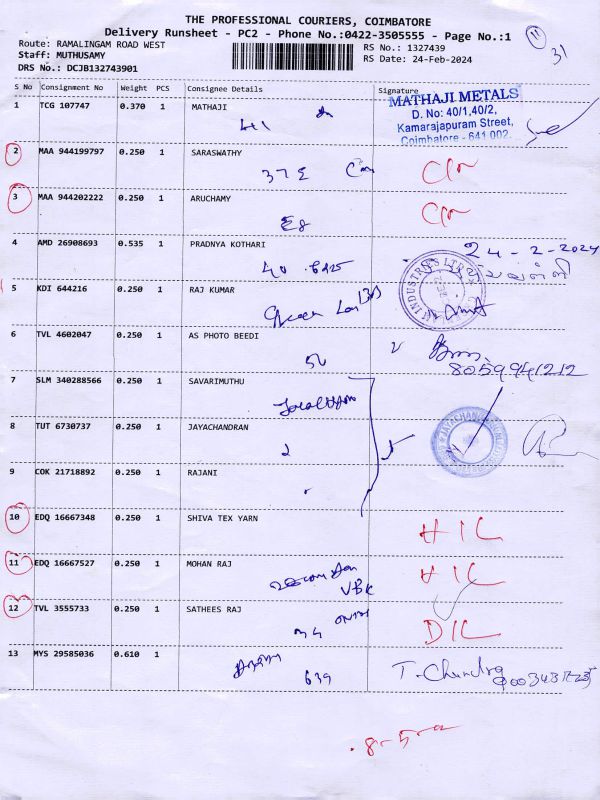 THE PROFESSIONAL COURIERS, COIMBATORE
Delivery Runsheet - PC2 - Phone No.:0422-3505555 - Page No.:1
Route: RAMALINGAM ROAD WEST
Staff: MUTHUSAMY
DRS No.: DCJB132743901
RS No.: 1327439
RS Date: 24-Feb-2024
11
31
S No Consignment No Weight PCS Consignee Details Signature
1 TCG 107747 0.370 1 MATHAJI
41
MATHAJI METALS
D. No: 40/1,40/2,
Kamarajapuram Street,
Coimbatore - 641 002.
2 MAA 944199797 0.250 1 SARASWATHY
37
3 MAA 944202222 0.250 1 ARUCHAMY
E8
4 AMD 26908693 0.535 1 PRADNYA KOTHARI
40
24-2-2024
5 KDI 644216 0.250 1 RAJ KUMAR
6 TVL 4602047 0.250 1 AS PHOTO BEEDI
8059941212
7 SLM 340288566 0.250 1 SAVARIMUTHU
8 TUT 6730737 0.250 1 JAYACHANDRAN
9 COK 21718892 0.250 1 RAJANI
10 EDQ 16667348 0.250 1 SHIVA TEX YARN
HIL
11 EDQ 16667527 0.250 1 MOHAN RAJ
VBK
HIL
12 TVL 3555733 0.250 1 SATHEES RAJ
DIL
13 MYS 29585036 0.610 1
639
T. Chandra